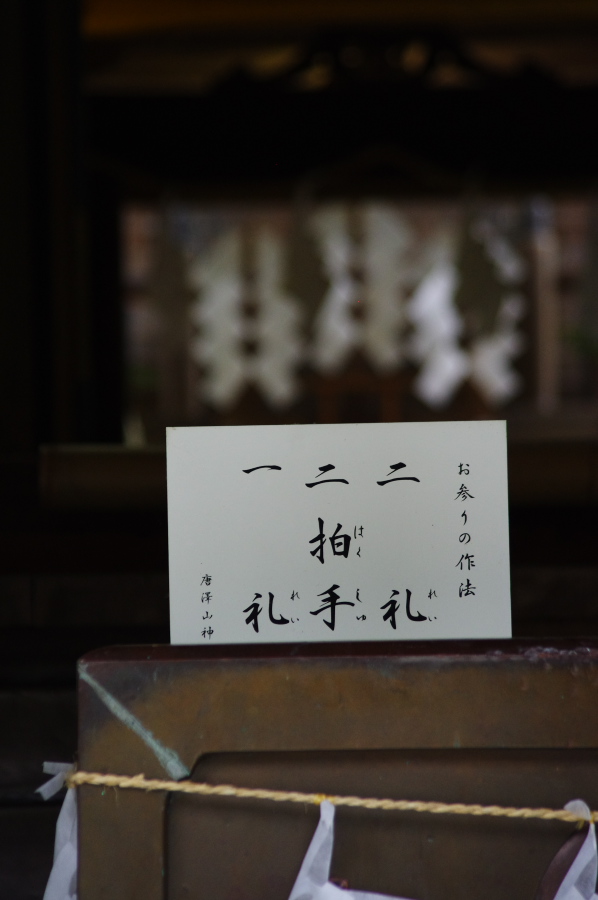 お参りの作法
二礼
れい
二拍手
はくしゆ
一礼
れい
唐澤山神